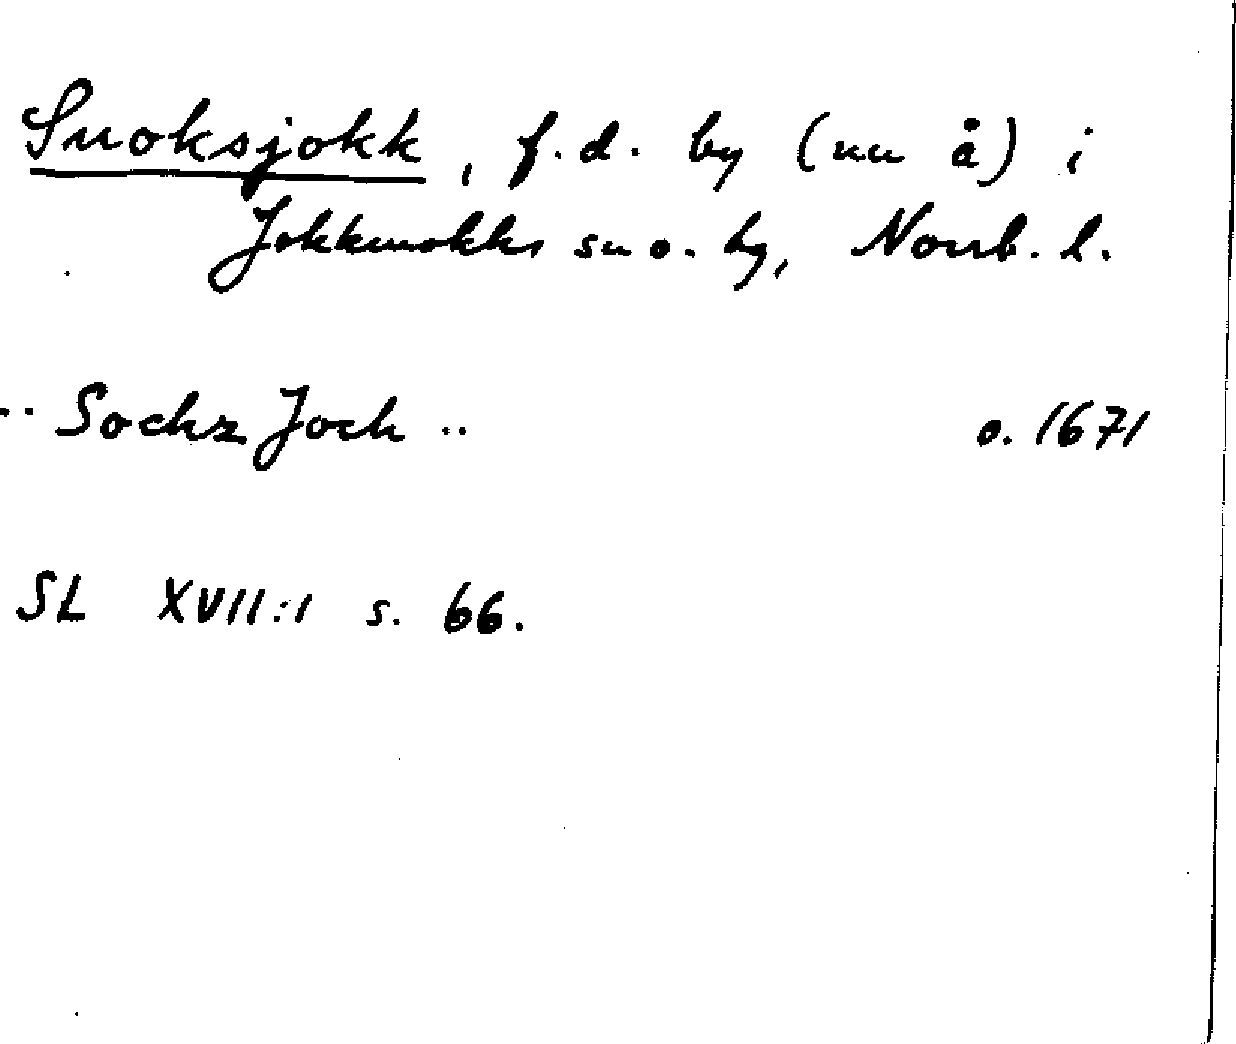 Snoksjokk, f.d. by (nu å) i
Jokkmokks sn o. by, Norrb. l.
.. Sockz Jock .. o. 1671
SL XVII:1 s. 66.